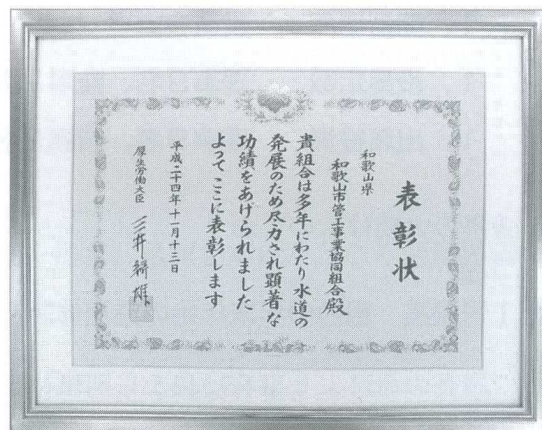 表彰状
和歌山県
和歌山市管工事業協同組合殿
貴組合は多年にわたり水道の
発展のため尽力され顕著な
功績をあげられました
よってここに表彰します
平成二十四年十一月十三日
厚生労働大臣 三井辨雄